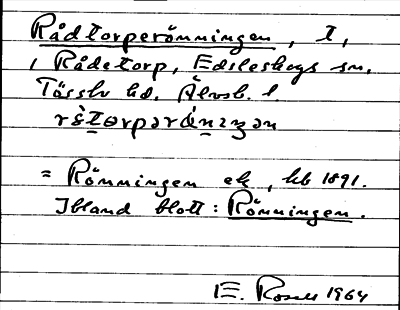 Rådtorperönningen, t,
i Rådetorp, Edsleskogs sn,
Tössbo hd. Älvsb. l.
= Rönningen ek, kb 1891.
Ibland blott: Rönningen.
E. Rosell 1964